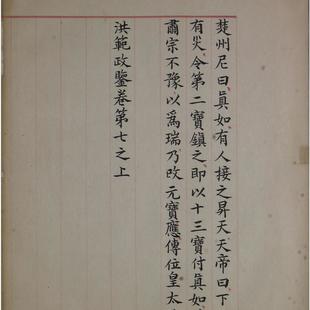 楚州尼曰真如有人接之昇天天帝曰下
有災令第二寶鎮之即以十三寶付真如
肅宗不豫以爲瑞乃改元寶應傳位皇太
洪範政鑒卷第七之上